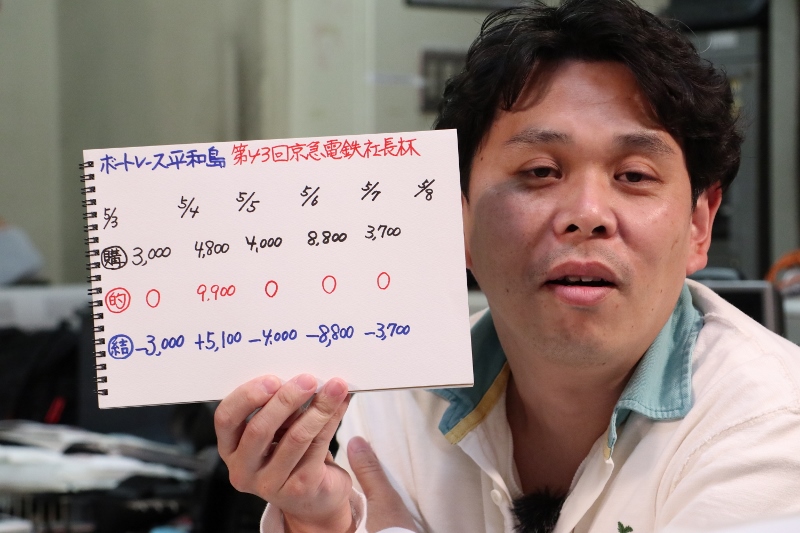 ボートレース平和島 第43回京急電鉄社長杯
5/3 5/4 5/5 5/6 5/7 5/8
購 3,000 4,800 4,000 8,800 3,700
的 0 9.900 0 0 0
結 -3,000 +5,100 -4,000 -8,800 -3,700